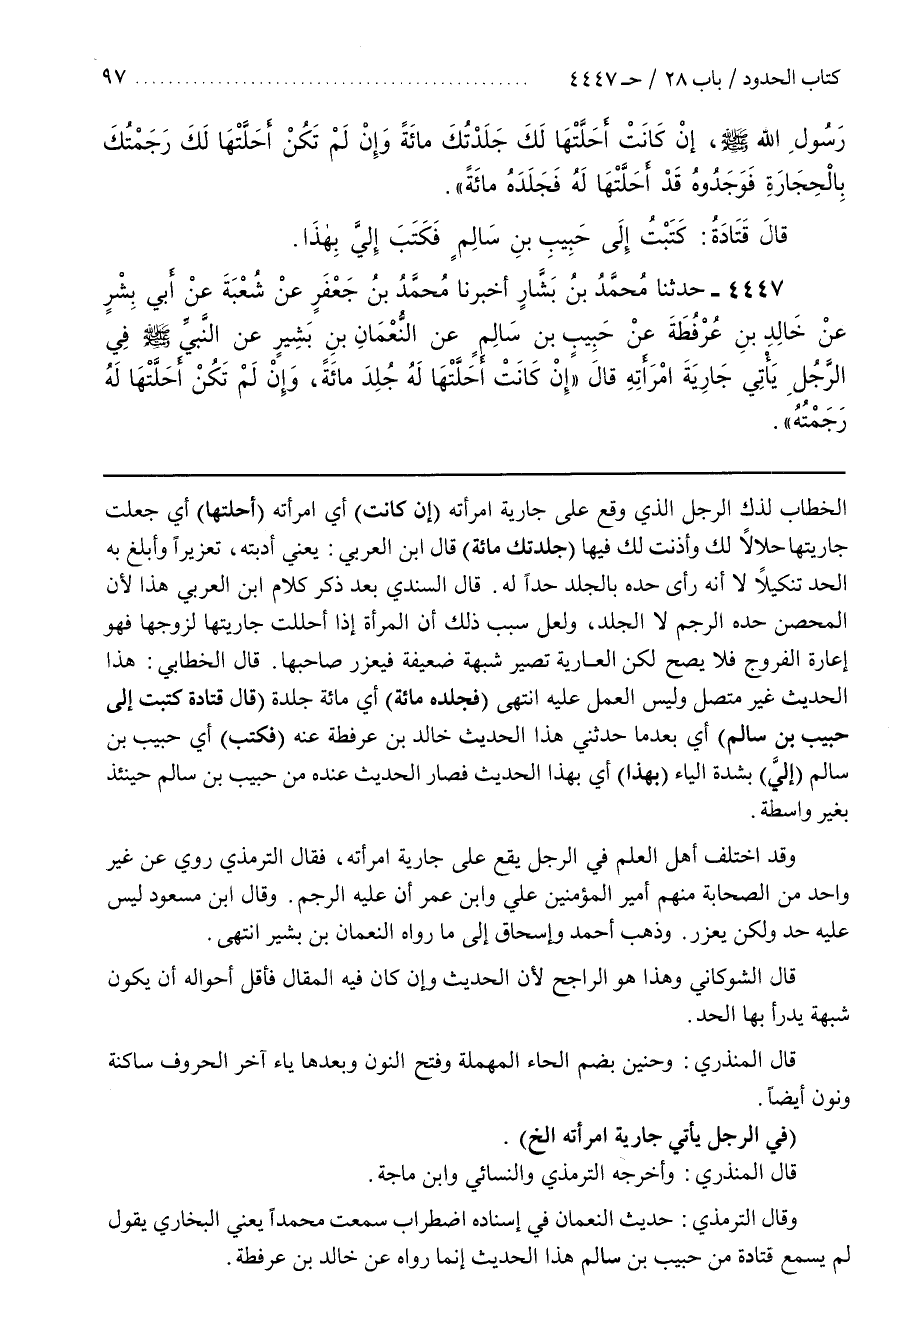 كتاب الحدود / باب ٢٨ / حـ ٤٤٤٧ ................................................ ٩٧
رَسُولِ الله ﷺ، إنْ كَانَتْ أَحَلَّتْهَا لَكَ جَلَدْتُكَ مائَةً وَإنْ لَمْ تَكُنْ أَحَلَّتْهَا لَكَ رَجَمْتُكَ
بِالْحِجَارَةِ فَوَجَدُوهُ قَدْ أَحَلَّتْهَا لَهُ فَجَلَدَهُ مائَةً».
قالَ قَتَادَةُ: كَتَبْتُ إلَى حَبِيبِ بنِ سَالِمٍ فَكَتَبَ إلَيَّ بِهٰذَا.
٤٤٤٧ ـ حدثنا مُحمَّدُ بنُ بَشَّارٍ أخبرنا مُحمَّدُ بنُ جَعْفَرٍ عنْ شُعْبَةَ عنْ أبي بِشْرٍ
عنْ خَالِدِ بنِ عُرْفُطَةَ عنْ حَبِيبٍ بن سَالِمٍ عن النُّعْمَانِ بنِ بَشِيرٍ عن النَّبيِّ ﷺ فِي
الرَّجُلِ يَأْتِي جَارِيَةَ امْرَأَتِهِ قالَ «إنْ كَانَتْ أَحَلَّتْهَا لَهُ جُلِدَ مائَةً، وَإنْ لَمْ تَكُنْ أَحَلَّتْهَا لَهُ
رَجَمْتُهُ».
الخطاب لذلك الرجل الذي وقع على جارية امرأته (إن كانت) أي امرأته (أحلتها) أي جعلت
جاريتها حلالاً لك وأذنت لك فيها (جلدتك مائة) قال ابن العربي: يعني أدبته، تعزيراً وأبلغ به
الحد تنكيلاً لا أنه رأى حده بالجلد حداً له. قال السندي بعد ذكر كلام ابن العربي هذا لأن
المحصن حده الرجم لا الجلد، ولعل سبب ذلك أن المرأة إذا أحللت جاريتها لزوجها فهو
إعارة الفروج فلا يصح لكن العارية تصير شبهة ضعيفة فيعزر صاحبها. قال الخطابي: هذا
الحديث غير متصل وليس العمل عليه انتهى (فجلده مائة) أي مائة جلدة (قال قتادة كتبت إلى
حبيب بن سالم) أي بعدما حدثني هذا الحديث خالد بن عرفطة عنه (فكتب) أي حبيب بن
سالم (إليَّ) بشدة الياء (بهذا) أي بهذا الحديث فصار الحديث عنده من حبيب بن سالم حينئذ
بغير واسطة.
وقد اختلف أهل العلم في الرجل يقع على جارية امرأته، فقال الترمذي روي عن غير
واحد من الصحابة منهم أمير المؤمنين علي وابن عمر أن عليه الرجم. وقال ابن مسعود ليس
عليه حد ولكن يعزر. وذهب أحمد وإسحاق إلى ما رواه النعمان بن بشير انتهى.
قال الشوكاني وهذا هو الراجح لأن الحديث وإن كان فيه المقال فأقل أحواله أن يكون
شبهة يدرأ بها الحد.
قال المنذري: وحنين بضم الحاء المهملة وفتح النون وبعدها ياء آخر الحروف ساكنة
ونون أيضاً.
(في الرجل يأتي جارية امرأته الخ) .
قال المنذري: وأخرجه الترمذي والنسائي وابن ماجة.
وقال الترمذي: حديث النعمان في إسناده اضطراب سمعت محمداً يعني البخاري يقول
لم يسمع قتادة من حبيب بن سالم هذا الحديث إنما رواه عن خالد بن عرفطة.